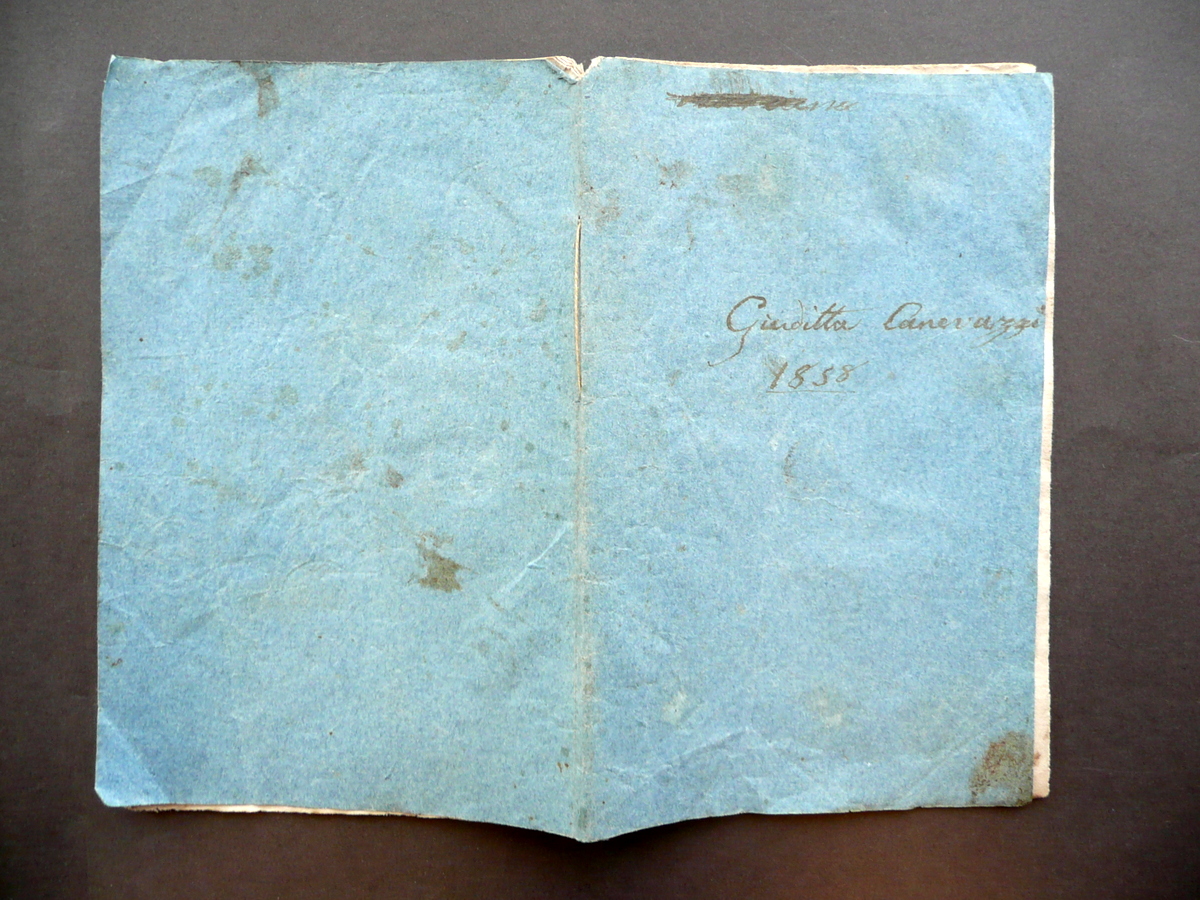 Giuditta Canevazzi
1858